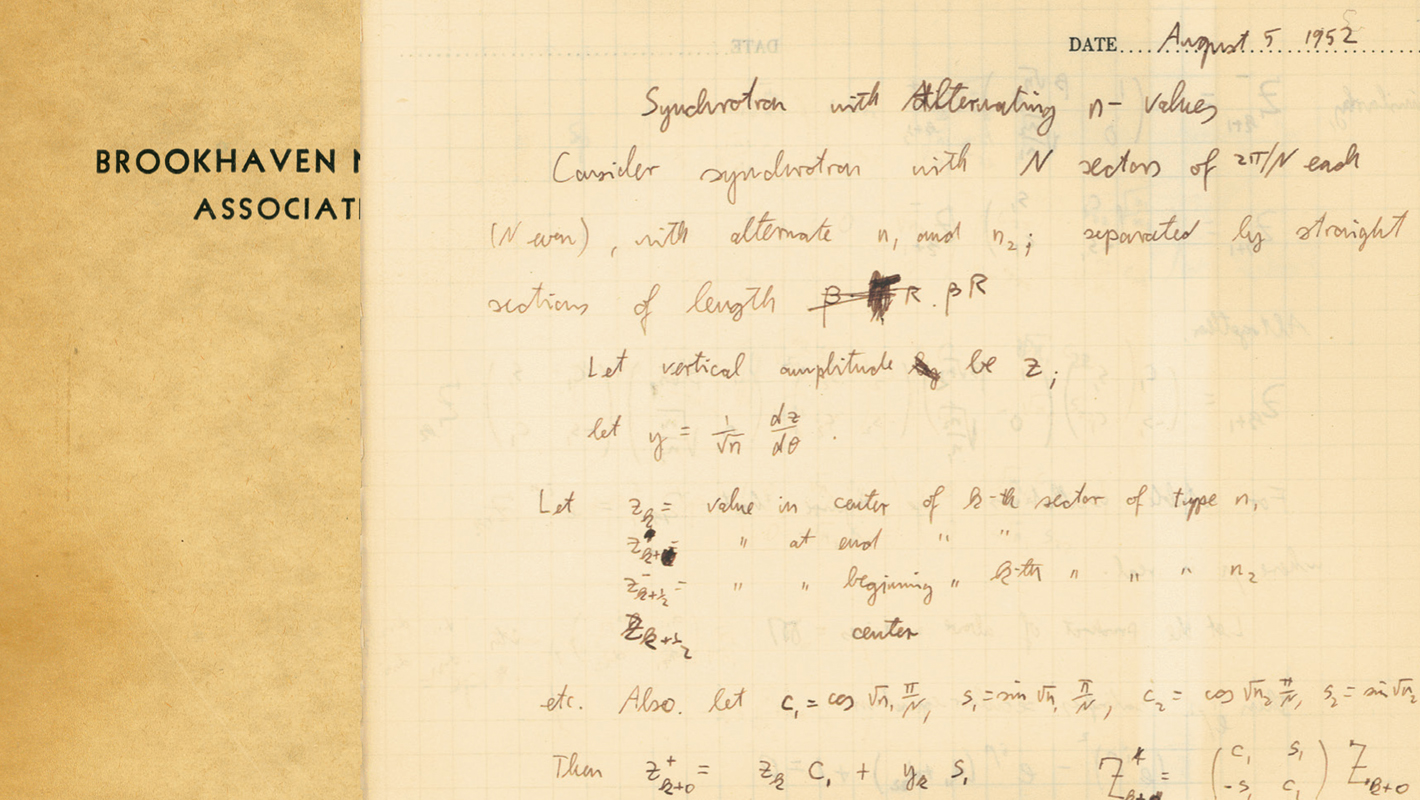 BROOKHAVEN
ASSOCIATI
DATE.... August 5 1952
Synchrotron with Alternating n- values
Consider synchrotron with N sectors of 2π/N each
(N even), with alternate n₁ and n₂; separated by straight
sections of length βR
Let vertical amplitude be z;
let y = 1/√n dz/dθ.
Let z_k = value in center of k-th sector of type n₁
" at end " "
z⁻_k+½ = " " beginning " k-th " " " n₂
z_k+½ center
etc. Also let c₁ = cos √n₁ π/N, s₁ = sin √n₁ π/N, c₂ = cos √n₂ π/N, s₂ = sin √n₂
Then z⁺_k+0 = z_k c₁ + y_k s₁ Z⁺ = (c₁ s₁ / -s₁ c₁) Z_k+0